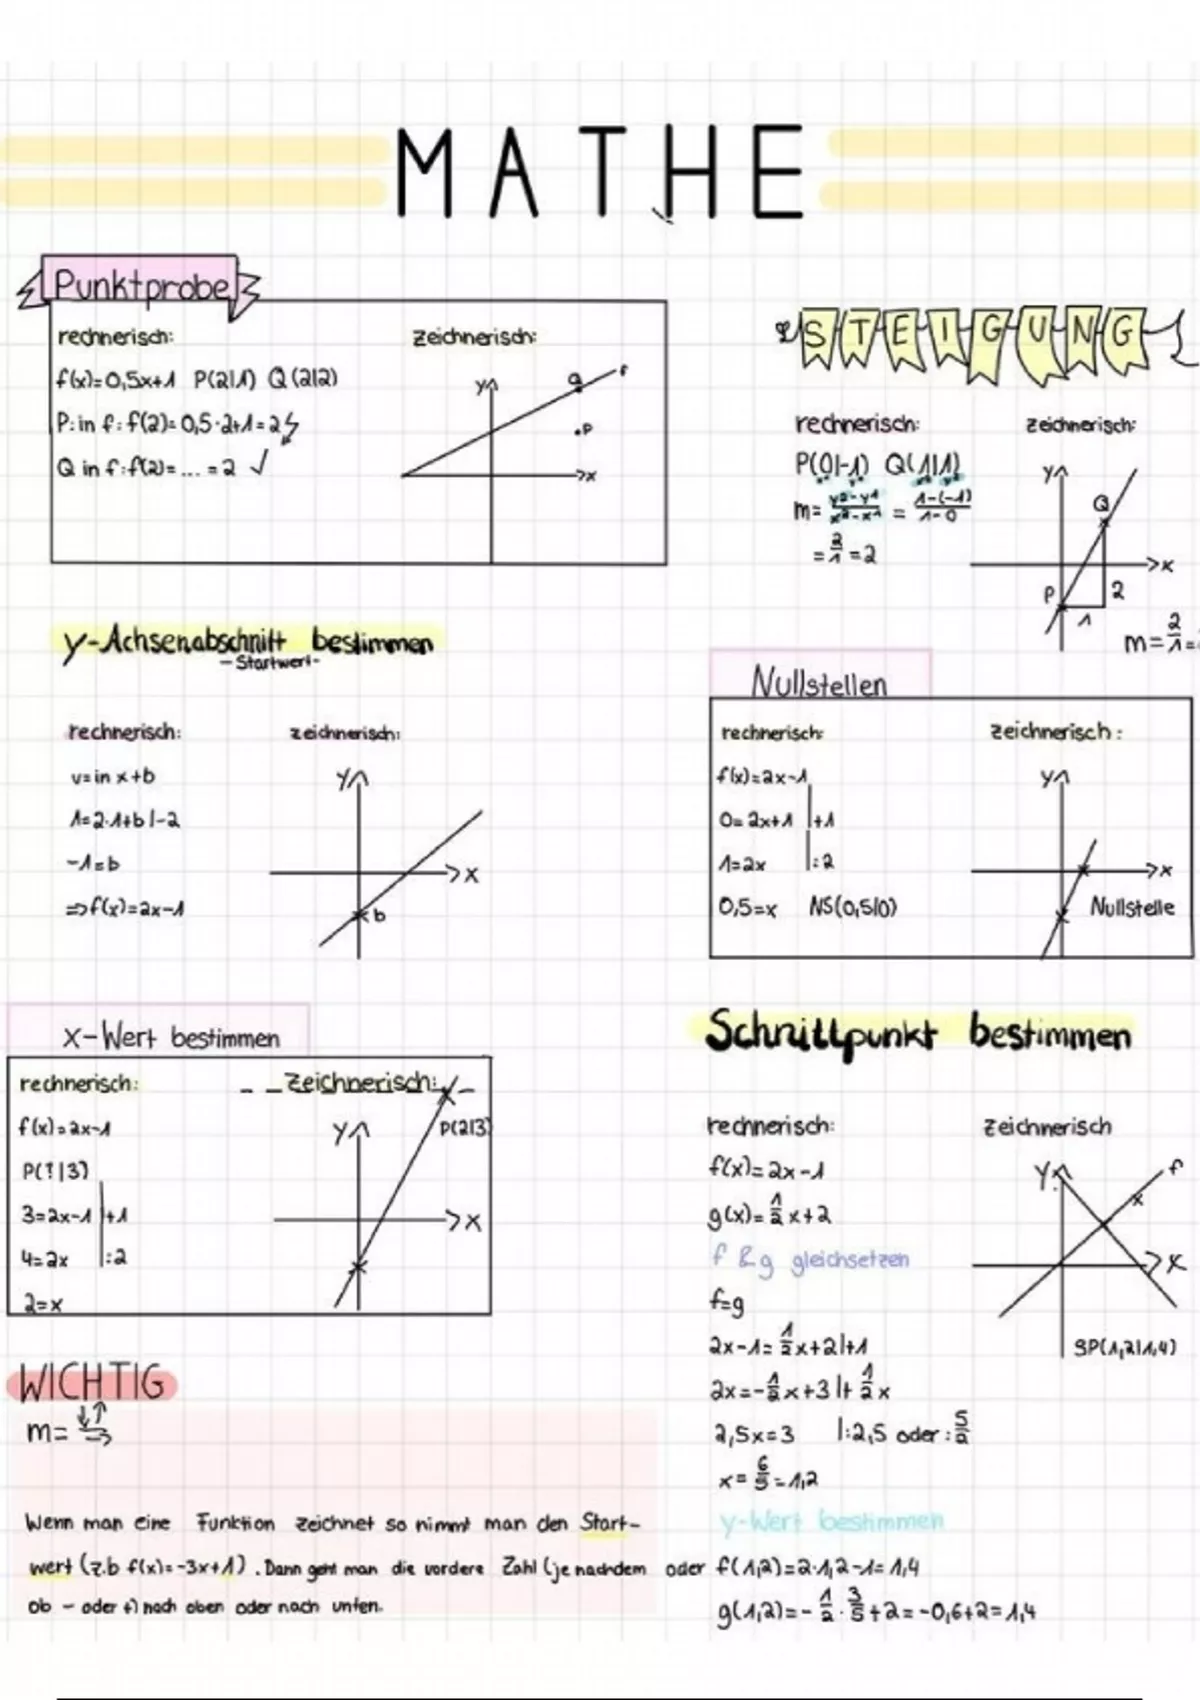 MATHE
Punktprobe
rechnerisch:
zeichnerisch:
f(x)=0,5x+1 P(2|1) Q(2|2)
P: in f: f(2)=0,5·2+1=2
Q in f: f(2)=...=2 ✓
y
Q
f
.P
x
STEIGUNG
rechnerisch:
zeichnerisch:
P(0|-1) Q(1|1)
m= y2-y1/x2-x1 = 1-(-1)/1-0
= 2/1 =2
y
Q
x
P
2
1
m= 2/1 =
y-Achsenabschnitt bestimmen
-Startwert-
rechnerisch:
zeichnerisch:
v=in x+b
1=2·1+b|-2
-1=b
=>f(x)=2x-1
y
x
b
Nullstellen
rechnerisch:
zeichnerisch:
f(x)=2x-1
0=2x+1 |+1
1=2x |:2
0,5=x NS(0,5|0)
y
x
Nullstelle
x-Wert bestimmen
rechnerisch:
zeichnerisch:
f(x)=2x-1
P(?|3)
3=2x-1 |+1
4=2x |:2
2=x
y
P(2|3)
x
Schnittpunkt bestimmen
rechnerisch:
zeichnerisch
f(x)=2x-1
g(x)= 1/2 x+2
f & g gleichsetzen
f=g
2x-1= 1/2 x+2|+1
2x=- 1/2 x+3 |+ 1/2 x
2,5x=3 |:2,5 oder : 5/2
x= 6/5 =1,2
y
f
x
x
SP(1,2|1,4)
y-Wert bestimmen
f(1,2)=2·1,2-1=1,4
g(1,2)=- 1/2 · 3/5 +2=-0,6+2=1,4
WICHTIG
m= ↓↑/→
Wenn man eine Funktion zeichnet so nimmt man den Start-
wert (z.b f(x)=-3x+1). Dann geht man die vordere Zahl (je nachdem oder
ob - oder +) nach oben oder nach unten.